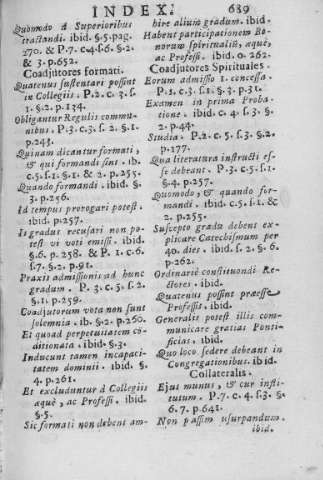 INDEX. 689
Quomodo à Superioribus
tractandi. ibid. §.5. pag.
270. & P.7. c.4.§.6. §.2.
& 3. p.652.
Coadjutores formati.
Quatenus sustentari possint
in Collegiis. P.2. c.3. s.
1. §.2. p.134.
Obligantur Regulis commu-
nibus. P.3. c.3. s.2. §.1.
p.243.
Quinam dicantur formati,
& qui formandi sint. ib.
c.5. s.1. §.1. & 2. p.255.
Quando formandi. ibid. §.
3. p.256.
Id tempus prorogari potest.
ibid. p.257.
Is gradus recusari non po-
test vi voti emissi. ibid.
§.6. p.258. & P.1. c.6.
s.7. §.2. p.91.
Praxis admissionis ad hunc
gradum. P.3. c.5. s.2.
§.1. p.259.
Coadjutorum vota non sunt
solemnia. ib. §.2. p.260.
Et quoad perpetuitatem cō-
ditionata. ibid. §.3.
Inducunt tamen incapaci-
tatem dominii. ibid. §.
4. p.261.
Et excluduntur à Collegiis
æquè, ac Professi. ibid.
§.5.
Sic formati non debent am-
bire alium gradum. ibid.
Habent participationem Bo-
norum spiritualiū, æquè,
ac Professi. ibid. 0. 262.
Coadjutores Spirituales.
Eorum admissio 1. concessa.
P.1. c.3. s.1. §.3. p.31.
Examen in prima Proba-
tione. ibid. c.4. s.3. §.
2. p.44.
Studia. P.2. c.5. s.3. §.2.
p.177.
Qua literatura instructi es-
se debeant. P.3. c.5. s.1.
§.4. p.257.
Quomodo, & quando for-
mandi. ibid. c.5. s.1. &
2. p.255.
Suscepto gradu debent ex-
plicare Catechismum per
40. dies. ibid. s.2. §.6.
p.262.
Ordinariè constituendi Re-
ctores. ibid.
Quatenus possint præesse
Professis. ibid.
Generalis potest illis com-
municare gratias Ponti-
ficias. ibid.
Quo loco sedere debeant in
Congregationibus. ibid.
Collateralis.
Ejus munus, & cur insti-
tutum. P.7. c.4. s.3. §.
6. 7. p.641.
Non passim usurpandum.
ibid.